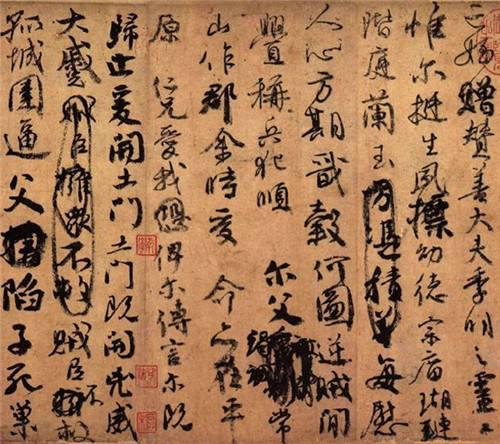 亡姪贈贊善大夫季明之靈曰
惟爾挺生夙標幼德宗廟瑚璉
階庭蘭玉方憑積善每慰
人心方期戩穀何圖逆賊閒
釁稱兵犯順爾父常
山作郡余時受命亦在平
原仁兄愛我恐俾爾傳言爾既
歸止爰開土門土門既開兇威
大蹙賊臣擁眾不救賊臣不救
孤城圍逼父陷子死巢